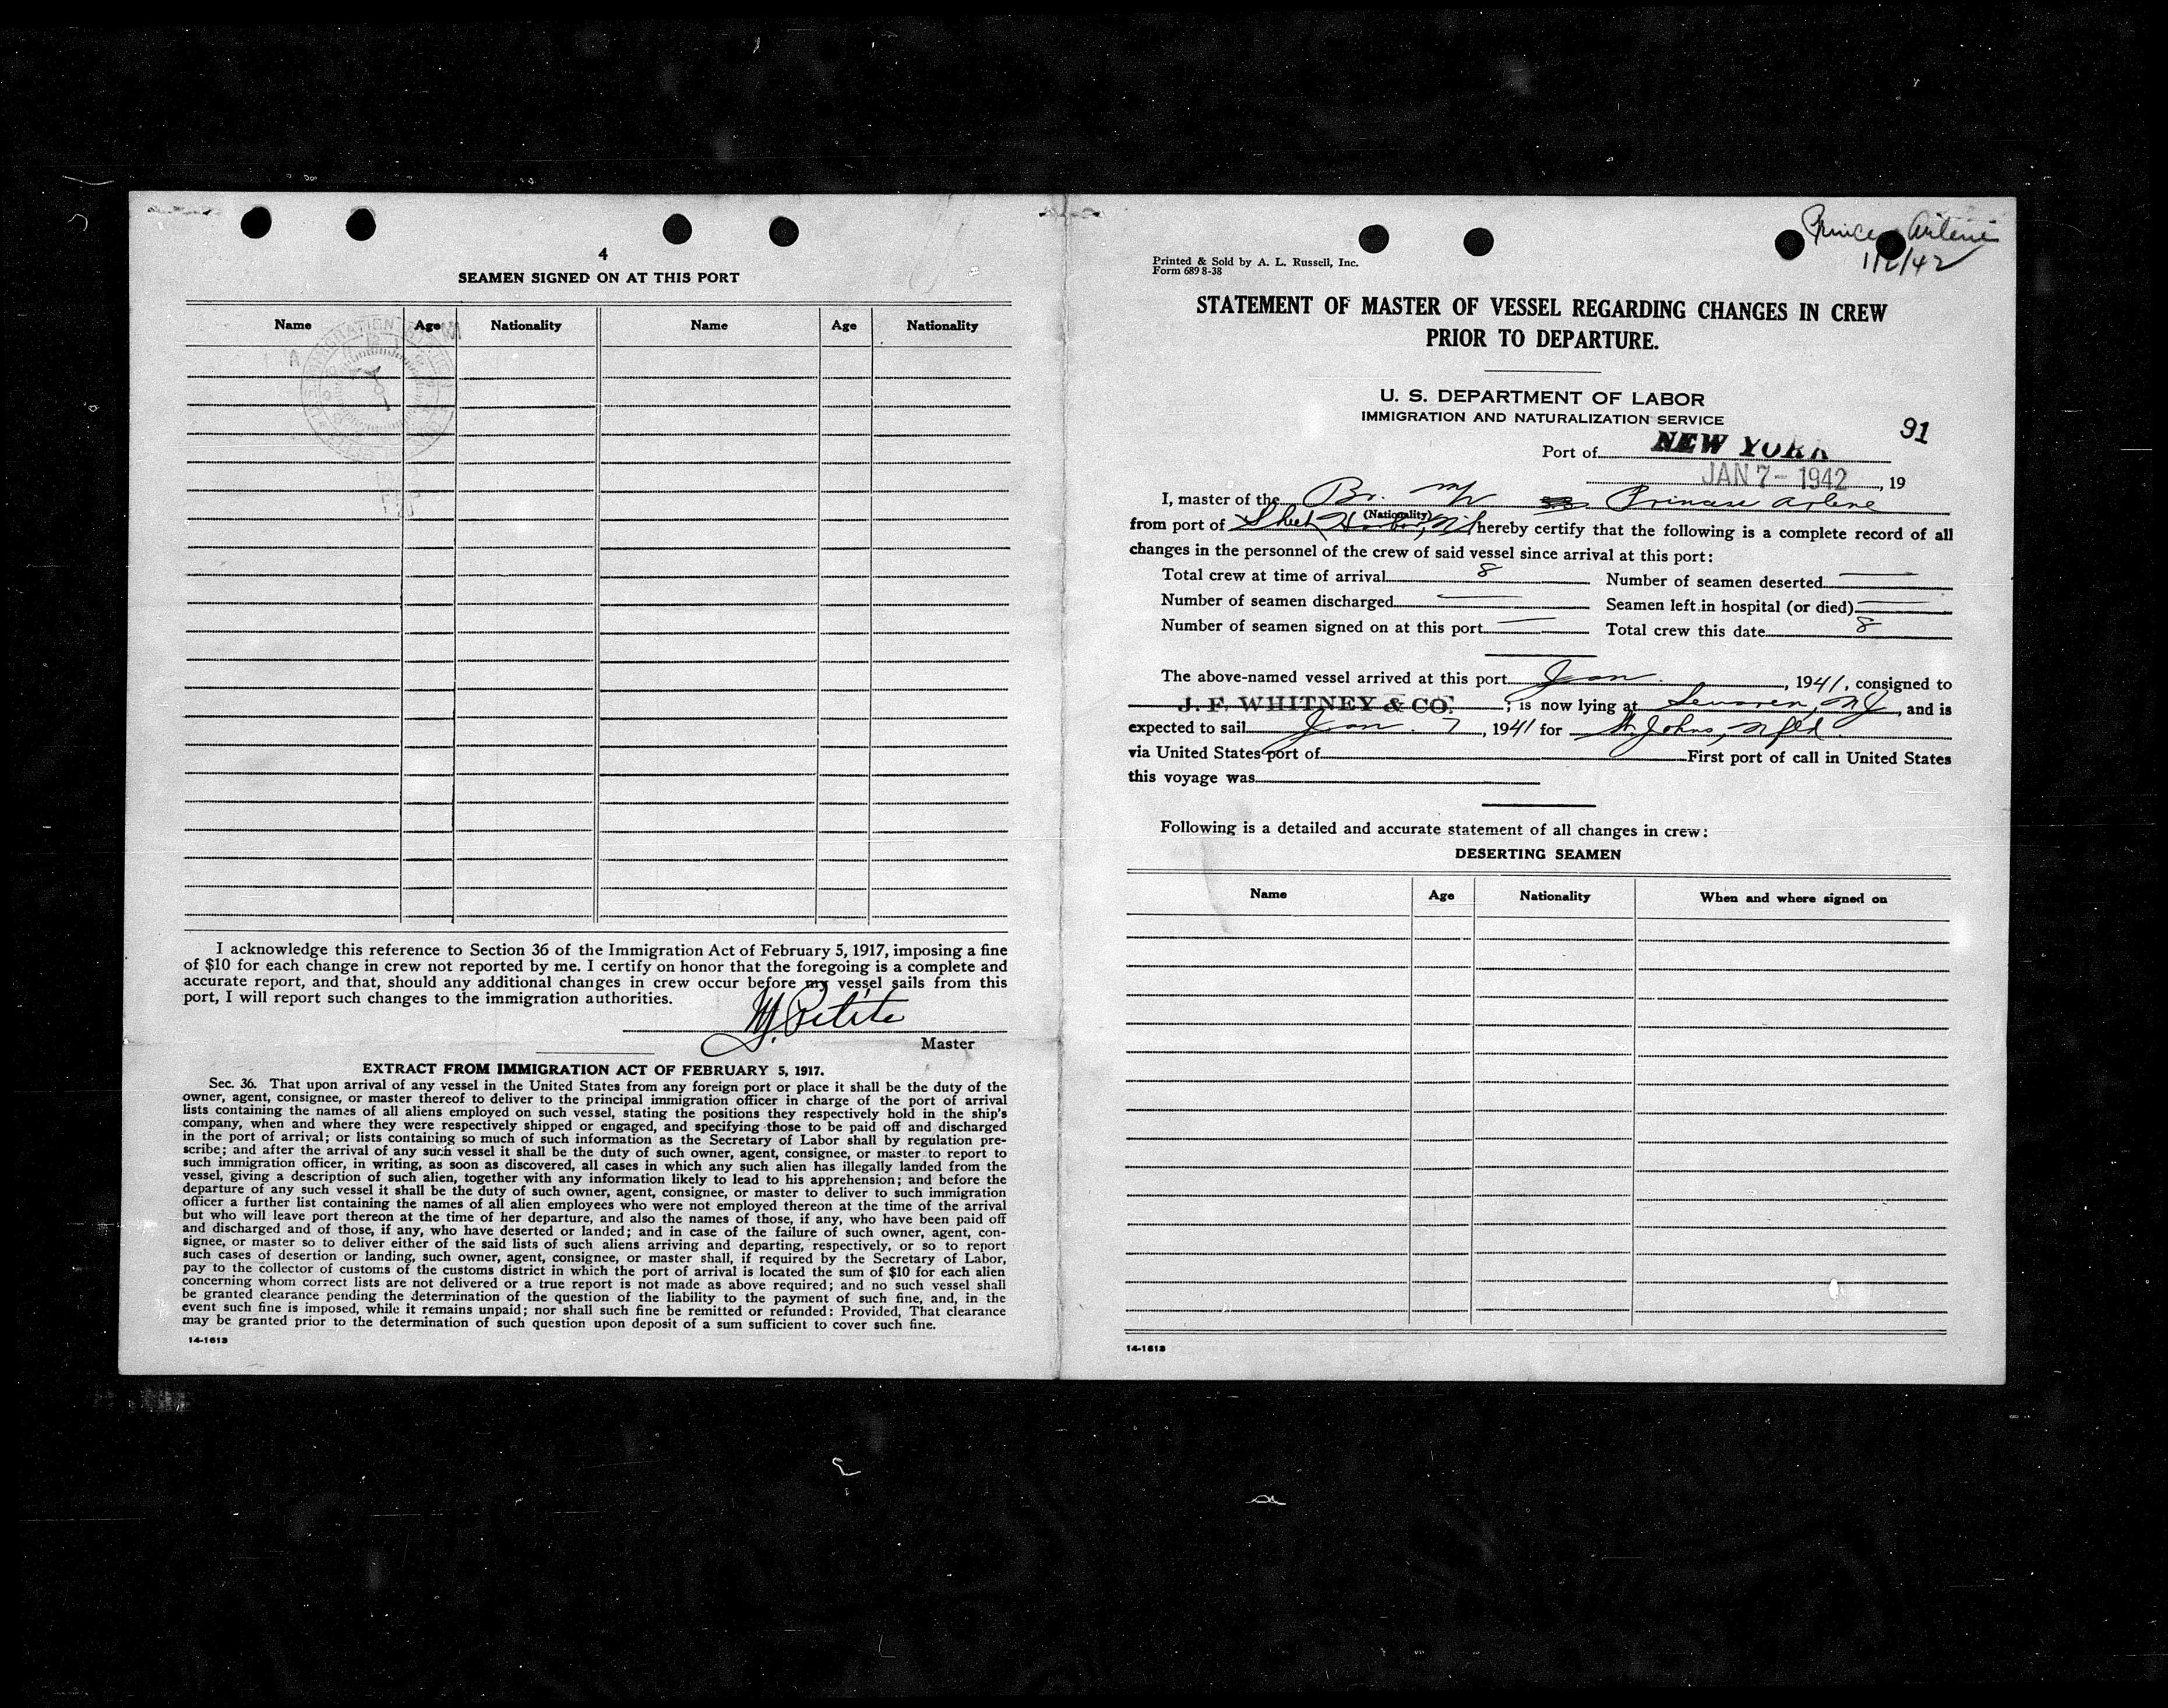 4
SEAMEN SIGNED ON AT THIS PORT
Name Age Nationality Name Age Nationality
I acknowledge this reference to Section 36 of the Immigration Act of February 5, 1917, imposing a fine
of $10 for each change in crew not reported by me. I certify on honor that the foregoing is a complete and
accurate report, and that, should any additional changes in crew occur before my vessel sails from this
port, I will report such changes to the immigration authorities.
Petite
Master
EXTRACT FROM IMMIGRATION ACT OF FEBRUARY 5, 1917.
Sec. 36. That upon arrival of any vessel in the United States from any foreign port or place it shall be the duty of the
owner, agent, consignee, or master thereof to deliver to the principal immigration officer in charge of the port of arrival
lists containing the names of all aliens employed on such vessel, stating the positions they respectively hold in the ship's
company, when and where they were respectively shipped or engaged, and specifying those to be paid off and discharged
in the port of arrival; or lists containing so much of such information as the Secretary of Labor shall by regulation pre-
scribe; and after the arrival of any such vessel it shall be the duty of such owner, agent, consignee, or master to report to
such immigration officer, in writing, as soon as discovered, all cases in which any such alien has illegally landed from the
vessel, giving a description of such alien, together with any information likely to lead to his apprehension; and before the
departure of any such vessel it shall be the duty of such owner, agent, consignee, or master to deliver to such immigration
officer a further list containing the names of all alien employees who were not employed thereon at the time of the arrival
but who will leave port thereon at the time of her departure, and also the names of those, if any, who have been paid off
and discharged and of those, if any, who have deserted or landed; and in case of the failure of such owner, agent, con-
signee, or master so to deliver either of the said lists of such aliens arriving and departing, respectively, or so to report
such cases of desertion or landing, such owner, agent, consignee, or master shall, if required by the Secretary of Labor,
pay to the collector of customs of the customs district in which the port of arrival is located the sum of $10 for each alien
concerning whom correct lists are not delivered or a true report is not made as above required; and no such vessel shall
be granted clearance pending the determination of the question of the liability to the payment of such fine, and, in the
event such fine is imposed, while it remains unpaid; nor shall such fine be remitted or refunded: Provided, That clearance
may be granted prior to the determination of such question upon deposit of a sum sufficient to cover such fine.
14-1613
Arlene
Printed & Sold by A. L. Russell, Inc.
Form 689 8-38
STATEMENT OF MASTER OF VESSEL REGARDING CHANGES IN CREW
PRIOR TO DEPARTURE.
U. S. DEPARTMENT OF LABOR
IMMIGRATION AND NATURALIZATION SERVICE
91
Port of NEW YORK
JAN 7 - 1942, 19
I, master of the Br. M/V Princess Arlene
(Nationality)
from port of Sheet Harbor, N.S. hereby certify that the following is a complete record of all
changes in the personnel of the crew of said vessel since arrival at this port:
Total crew at time of arrival 8 Number of seamen deserted —
Number of seamen discharged — Seamen left in hospital (or died) —
Number of seamen signed on at this port — Total crew this date 8
The above-named vessel arrived at this port Jan., 1941, consigned to
J. F. WHITNEY & CO., is now lying at Sewaren, NJ, and is
expected to sail Jan. 7, 1941 for St. Johns, Nfld.
via United States port of First port of call in United States
this voyage was
Following is a detailed and accurate statement of all changes in crew:
DESERTING SEAMEN
Name Age Nationality When and where signed on
14-1613